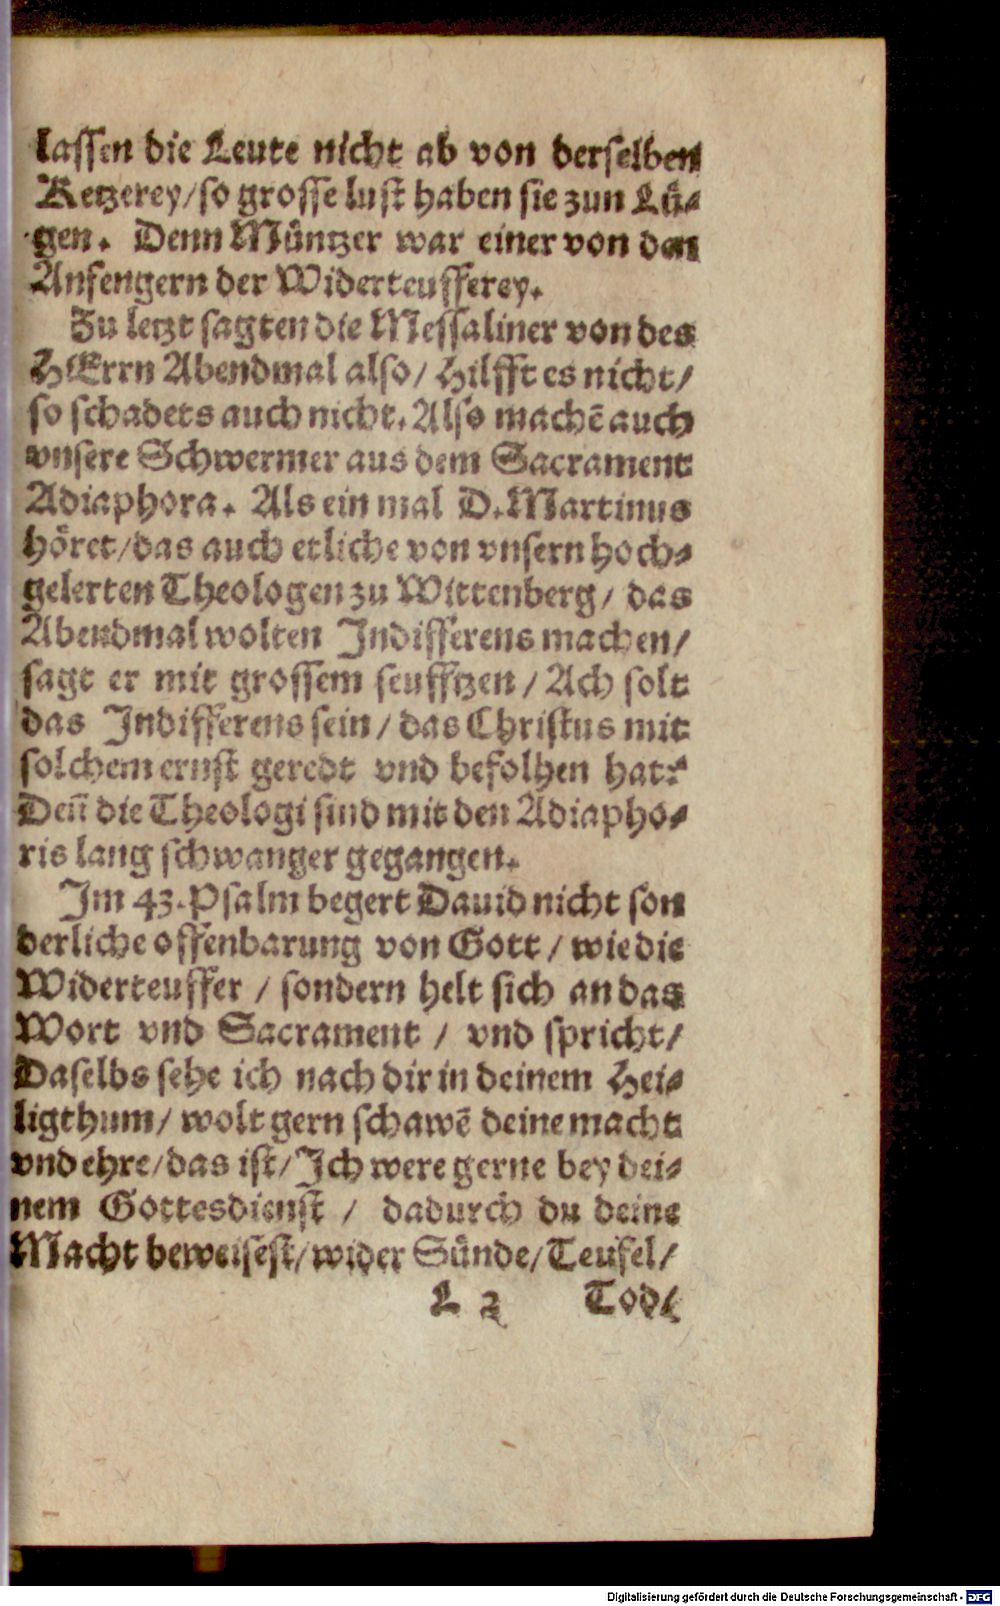 lassen die Leute nicht ab von derselben
Ketzerey/so grosse lust haben sie zun Lü-
gen. Denn Müntzer war einer von den
Anfengern der Widerteufferey.
Zu letzt sagten die Messaliner von des
HErrn Abendmal also/ Hilfft es nicht/
so schadets auch nicht. Also machē auch
vnsere Schwermer aus dem Sacrament
Adiaphora. Als ein mal D. Martinus
höret/das auch etliche von vnsern hoch-
gelerten Theologen zu Wittenberg/ das
Abendmal wolten Indifferens machen/
sagt er mit grossem seufftzen/ Ach solt
das Indifferens sein/ das Christus mit
solchem ernst geredt vnd befolhen hat?
Deñ die Theologi sind mit den Adiapho-
ris lang schwanger gegangen.
Im 43. Psalm begert Dauid nicht son
derliche offenbarung von Gott/ wie die
Widerteuffer/ sondern helt sich an das
Wort vnd Sacrament/ vnd spricht/
Daselbs sehe ich nach dir in deinem Hei-
ligthum/ wolt gern schawē deine macht
vnd ehre/das ist/Ich were gerne bey dei-
nem Gottesdienst/ dadurch du deine
Macht beweisest/wider Sünde/Teufel/
L 2 Tod/
Digitalisierung gefördert durch die Deutsche Forschungsgemeinschaft - DFG